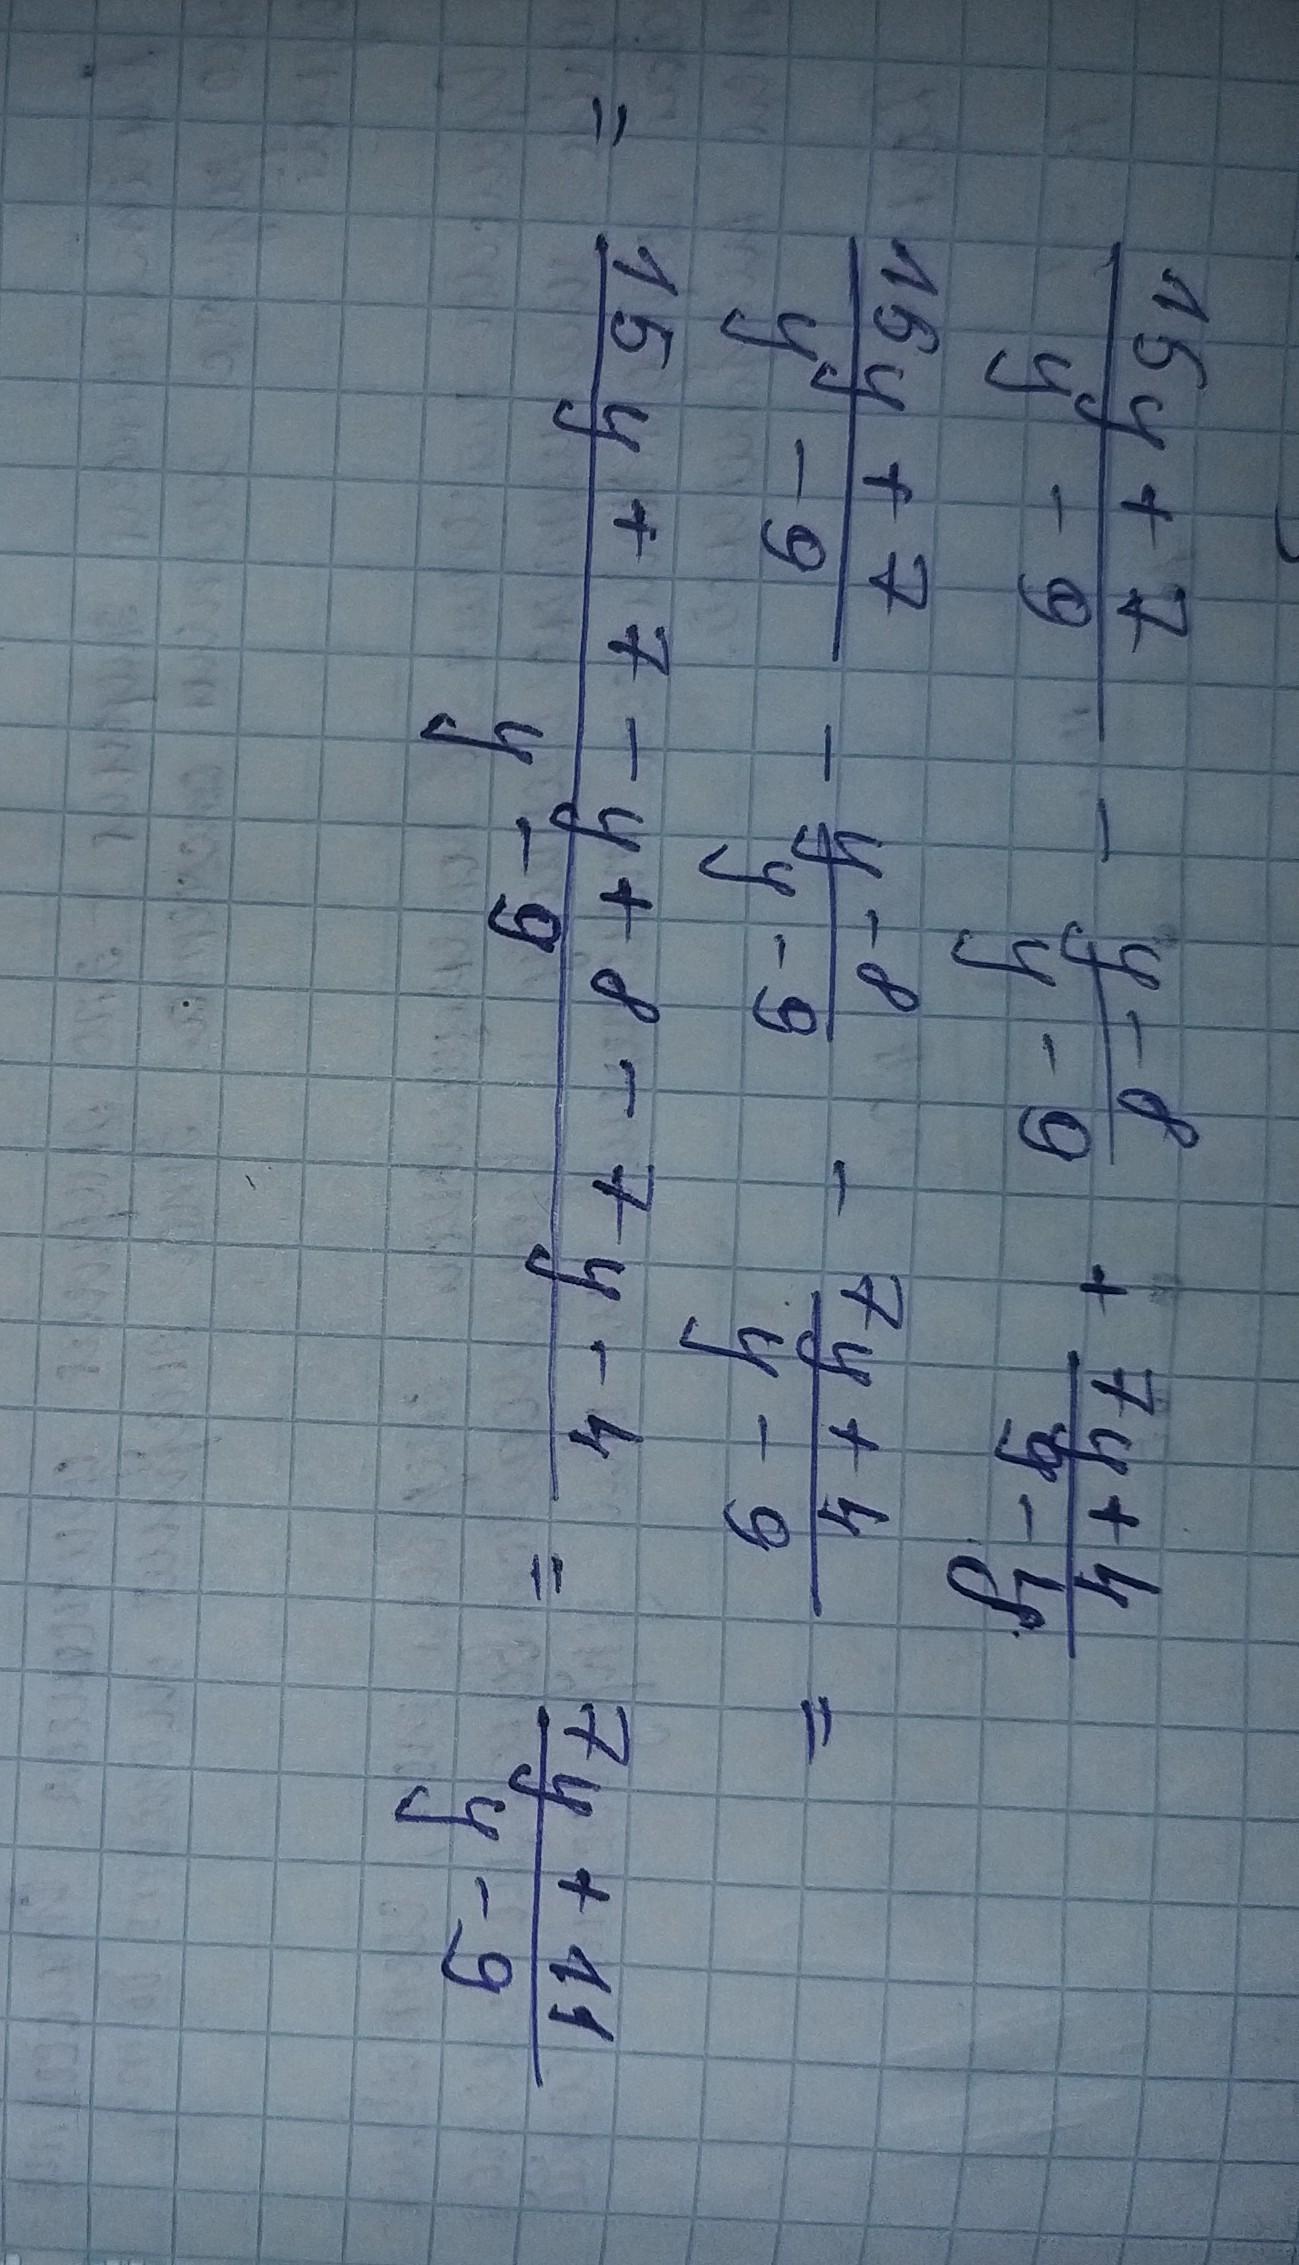 (15y + 7)/(y - 9) - (y - 8)/(y - 9) + (7y + 4)/(9 - y)
(15y + 7)/(y - 9) - (y - 8)/(y - 9) - (7y + 4)/(y - 9) =
= (15y + 7 - y + 8 - 7y - 4)/(y - 9) = (7y + 11)/(y - 9)